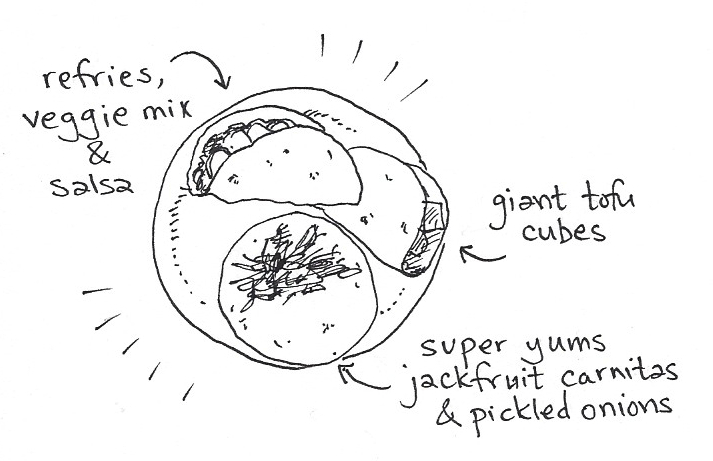 refries,
veggie mix
&
salsa
giant tofu
cubes
super yums
jackfruit carnitas
& pickled onions